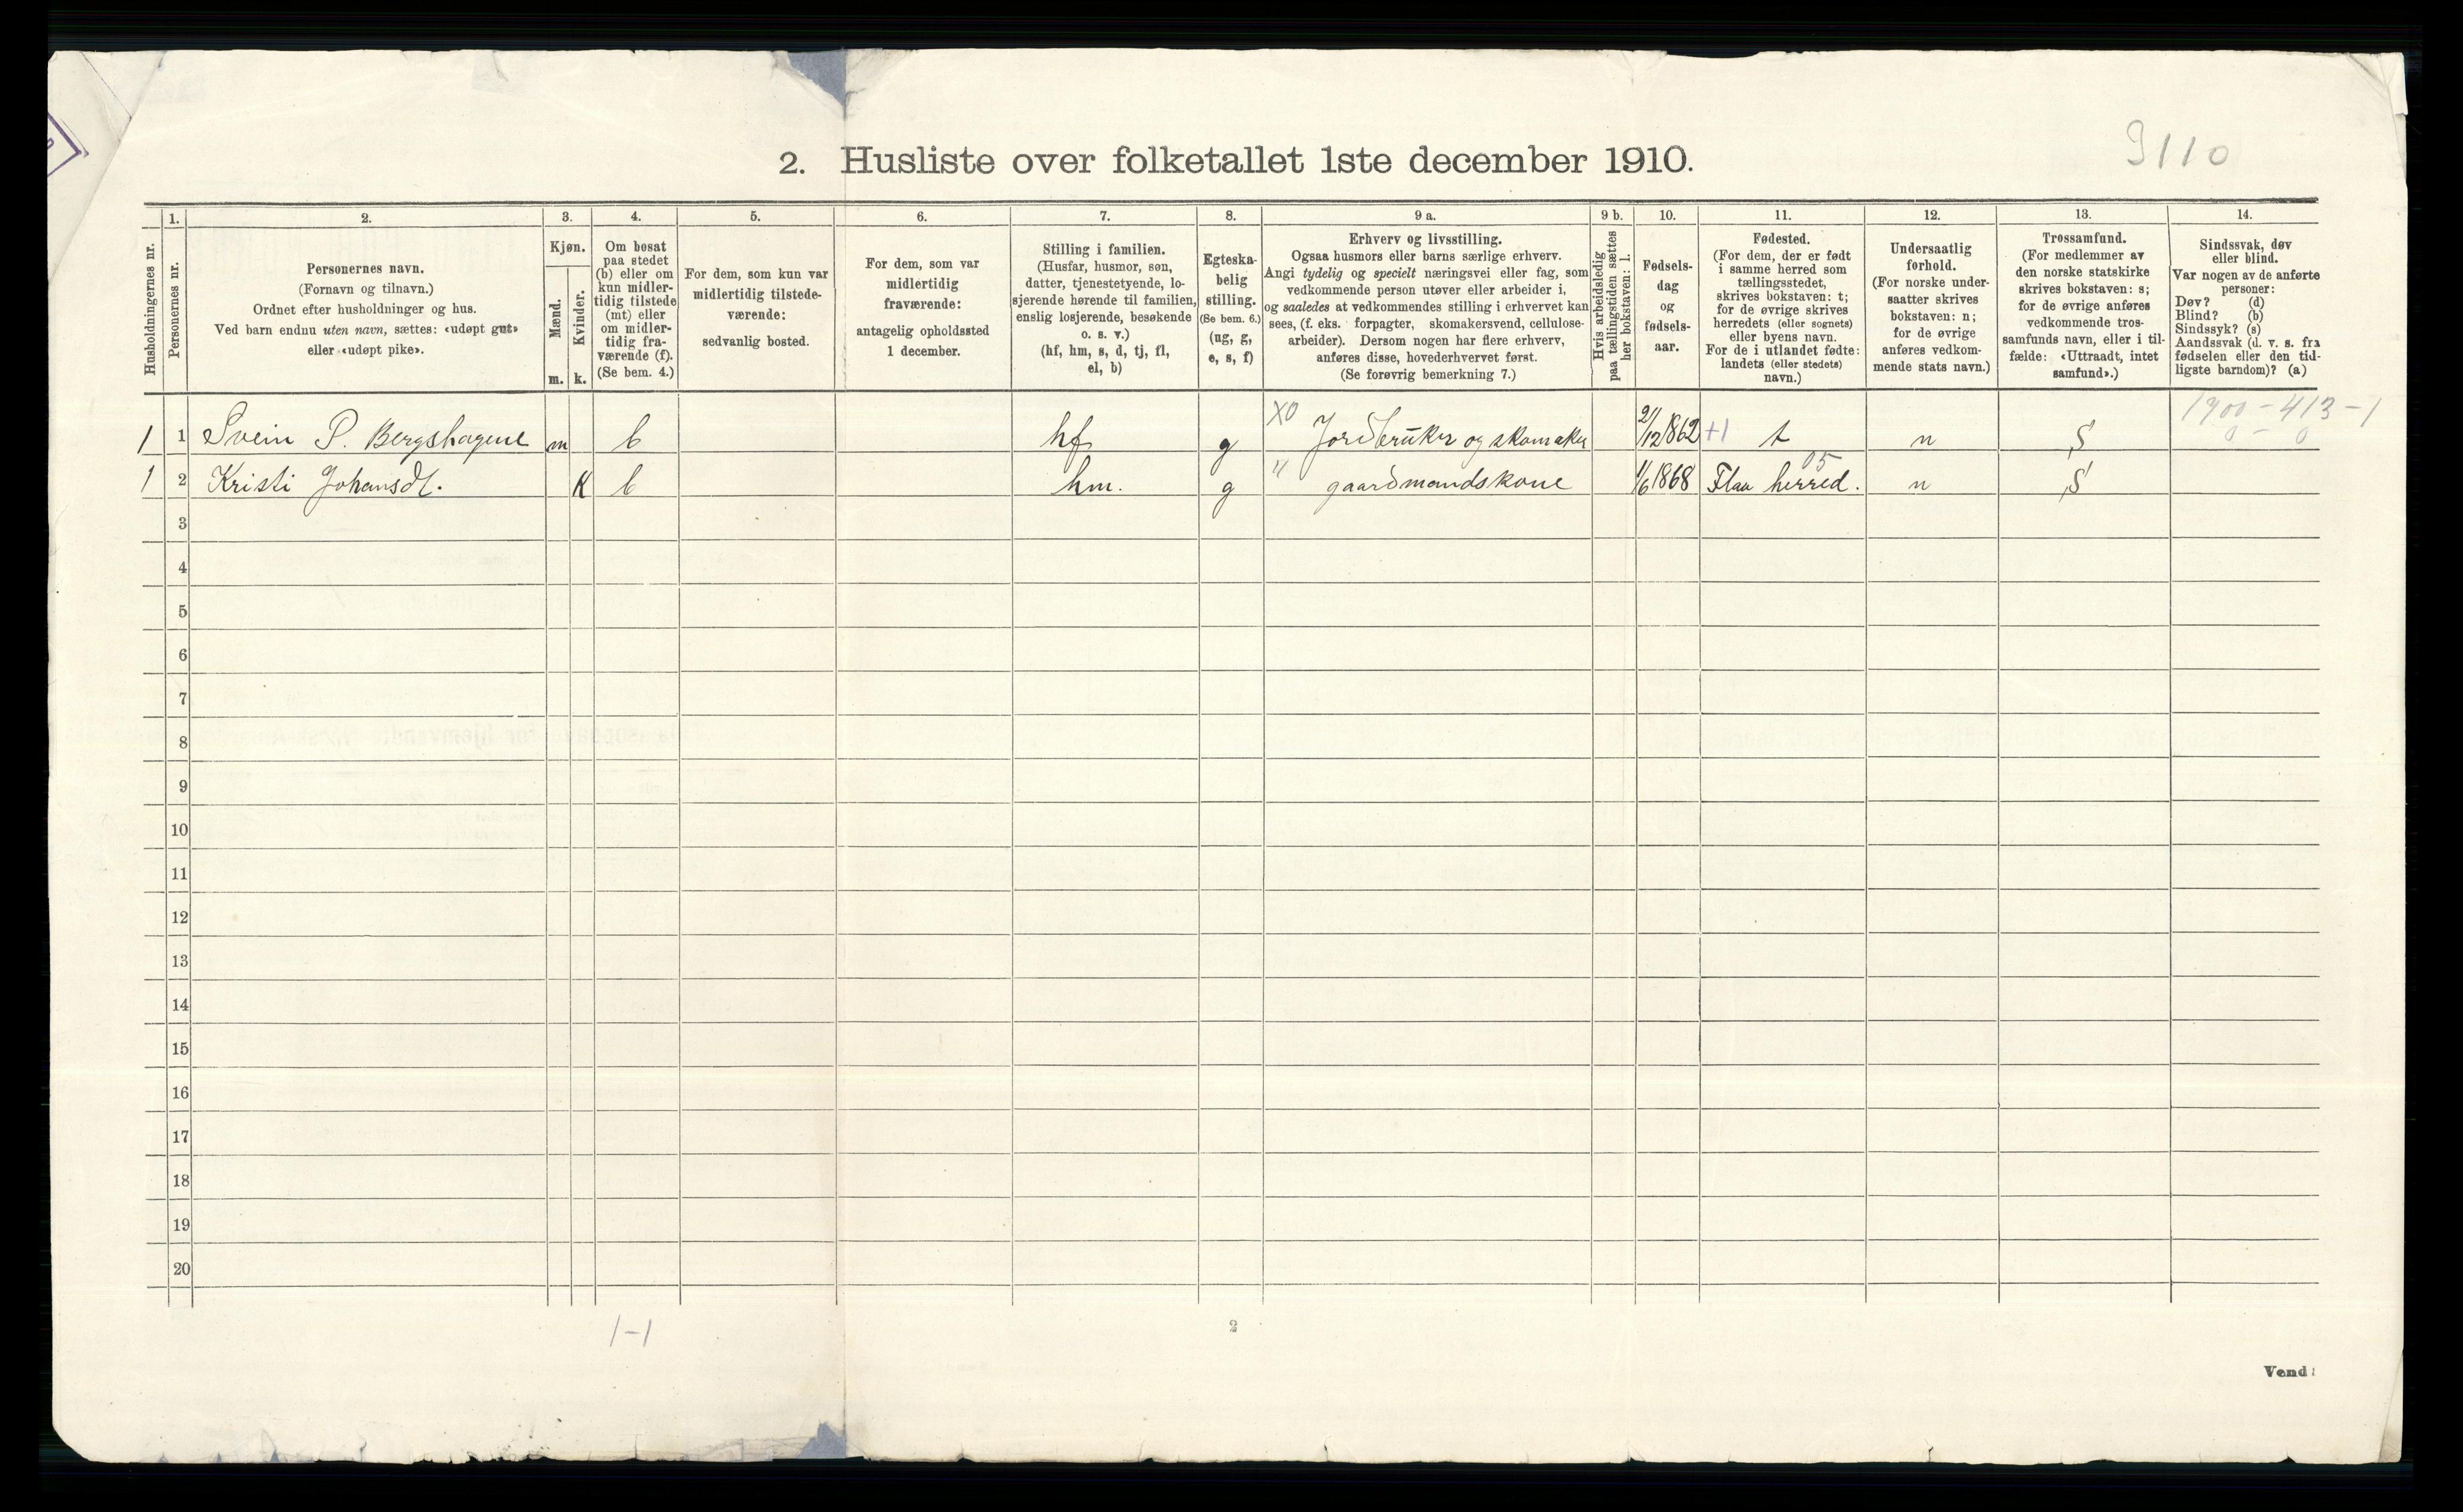 9110
2. Husliste over folketallet 1ste december 1910.
1. 2. 3. 4. 5. 6. 7. 8. 9 a. 9 b. 10. 11. 12. 13. 14.
Husholdningernes nr.
Personernes nr.
Personernes navn.
(Fornavn og tilnavn.)
Ordnet efter husholdninger og hus.
Ved barn endnu uten navn, sættes: «udøpt gut»
eller «udøpt pike».
Kjøn.
Mænd.
Kvinder.
m. k.
Om bosat
paa stedet
(b) eller om
kun midler-
tidig tilstede
(mt) eller
om midler-
tidig fra-
værende (f).
(Se bem. 4.)
For dem, som kun var
midlertidig tilstede-
værende:
sedvanlig bosted.
For dem, som var
midlertidig
fraværende:
antagelig opholdssted
1 december.
Stilling i familien.
(Husfar, husmor, søn,
datter, tjenestetyende, lo-
sjerende hørende til familien,
enslig losjerende, besøkende
o. s. v.)
(hf, hm, s, d, tj, fl,
el, b)
Egteska-
belig
stilling.
(Se bem. 6.)
(ug, g,
e, s, f)
Erhverv og livsstilling.
Ogsaa husmors eller barns særlige erhverv.
Angi tydelig og specielt næringsvei eller fag, som
vedkommende person utøver eller arbeider i,
og saaledes at vedkommendes stilling i erhvervet kan
sees, (f. eks. forpagter, skomakersvend, cellulose-
arbeider). Dersom nogen har flere erhverv,
anføres disse, hovederhvervet først.
(Se forøvrig bemerkning 7.)
Hvis arbeidsledig
paa tællingstiden sættes
her bokstaven: l.
Fødsels-
dag
og
fødsels-
aar.
Fødested.
(For dem, der er født
i samme herred som
tællingsstedet,
skrives bokstaven: t;
for de øvrige skrives
herredets (eller sognets)
eller byens navn.
For de i utlandet fødte:
landets (eller stedets)
navn.)
Undersaatlig
forhold.
(For norske under-
saatter skrives
bokstaven: n;
for de øvrige
anføres vedkom-
mende stats navn.)
Trossamfund.
(For medlemmer av
den norske statskirke
skrives bokstaven: s;
for de øvrige anføres
vedkommende tros-
samfunds navn, eller i til-
fælde: «Uttraadt, intet
samfund».)
Sindssvak, døv
eller blind.
Var nogen av de anførte
personer:
Døv? (d)
Blind? (b)
Sindssyk? (s)
Aandssvak (d. v. s. fra
fødselen eller den tid-
ligste barndom)? (a)
X0 1900-413-1
1 1 Svein P. Bergshagene m b hf g Jordbruker og skomaker 2/12 1862 +1 t n S 0 - 0
05
1 2 Kristi Johansdt. K b hm. g " gaardmandskone 1/6 1868 Flaa herred. n S
3
4
5
6
7
8
9
10
11
12
13
14
15
16
17
18
19
20
1-1
2
Vend!